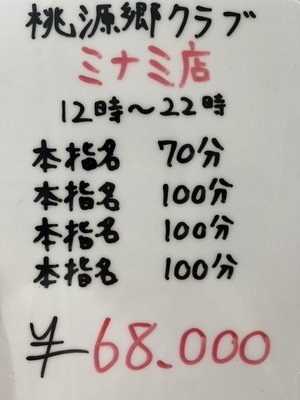 桃源郷クラブ
ミナミ店
12時～22時
本指名 70分
本指名 100分
本指名 100分
本指名 100分
¥68.000